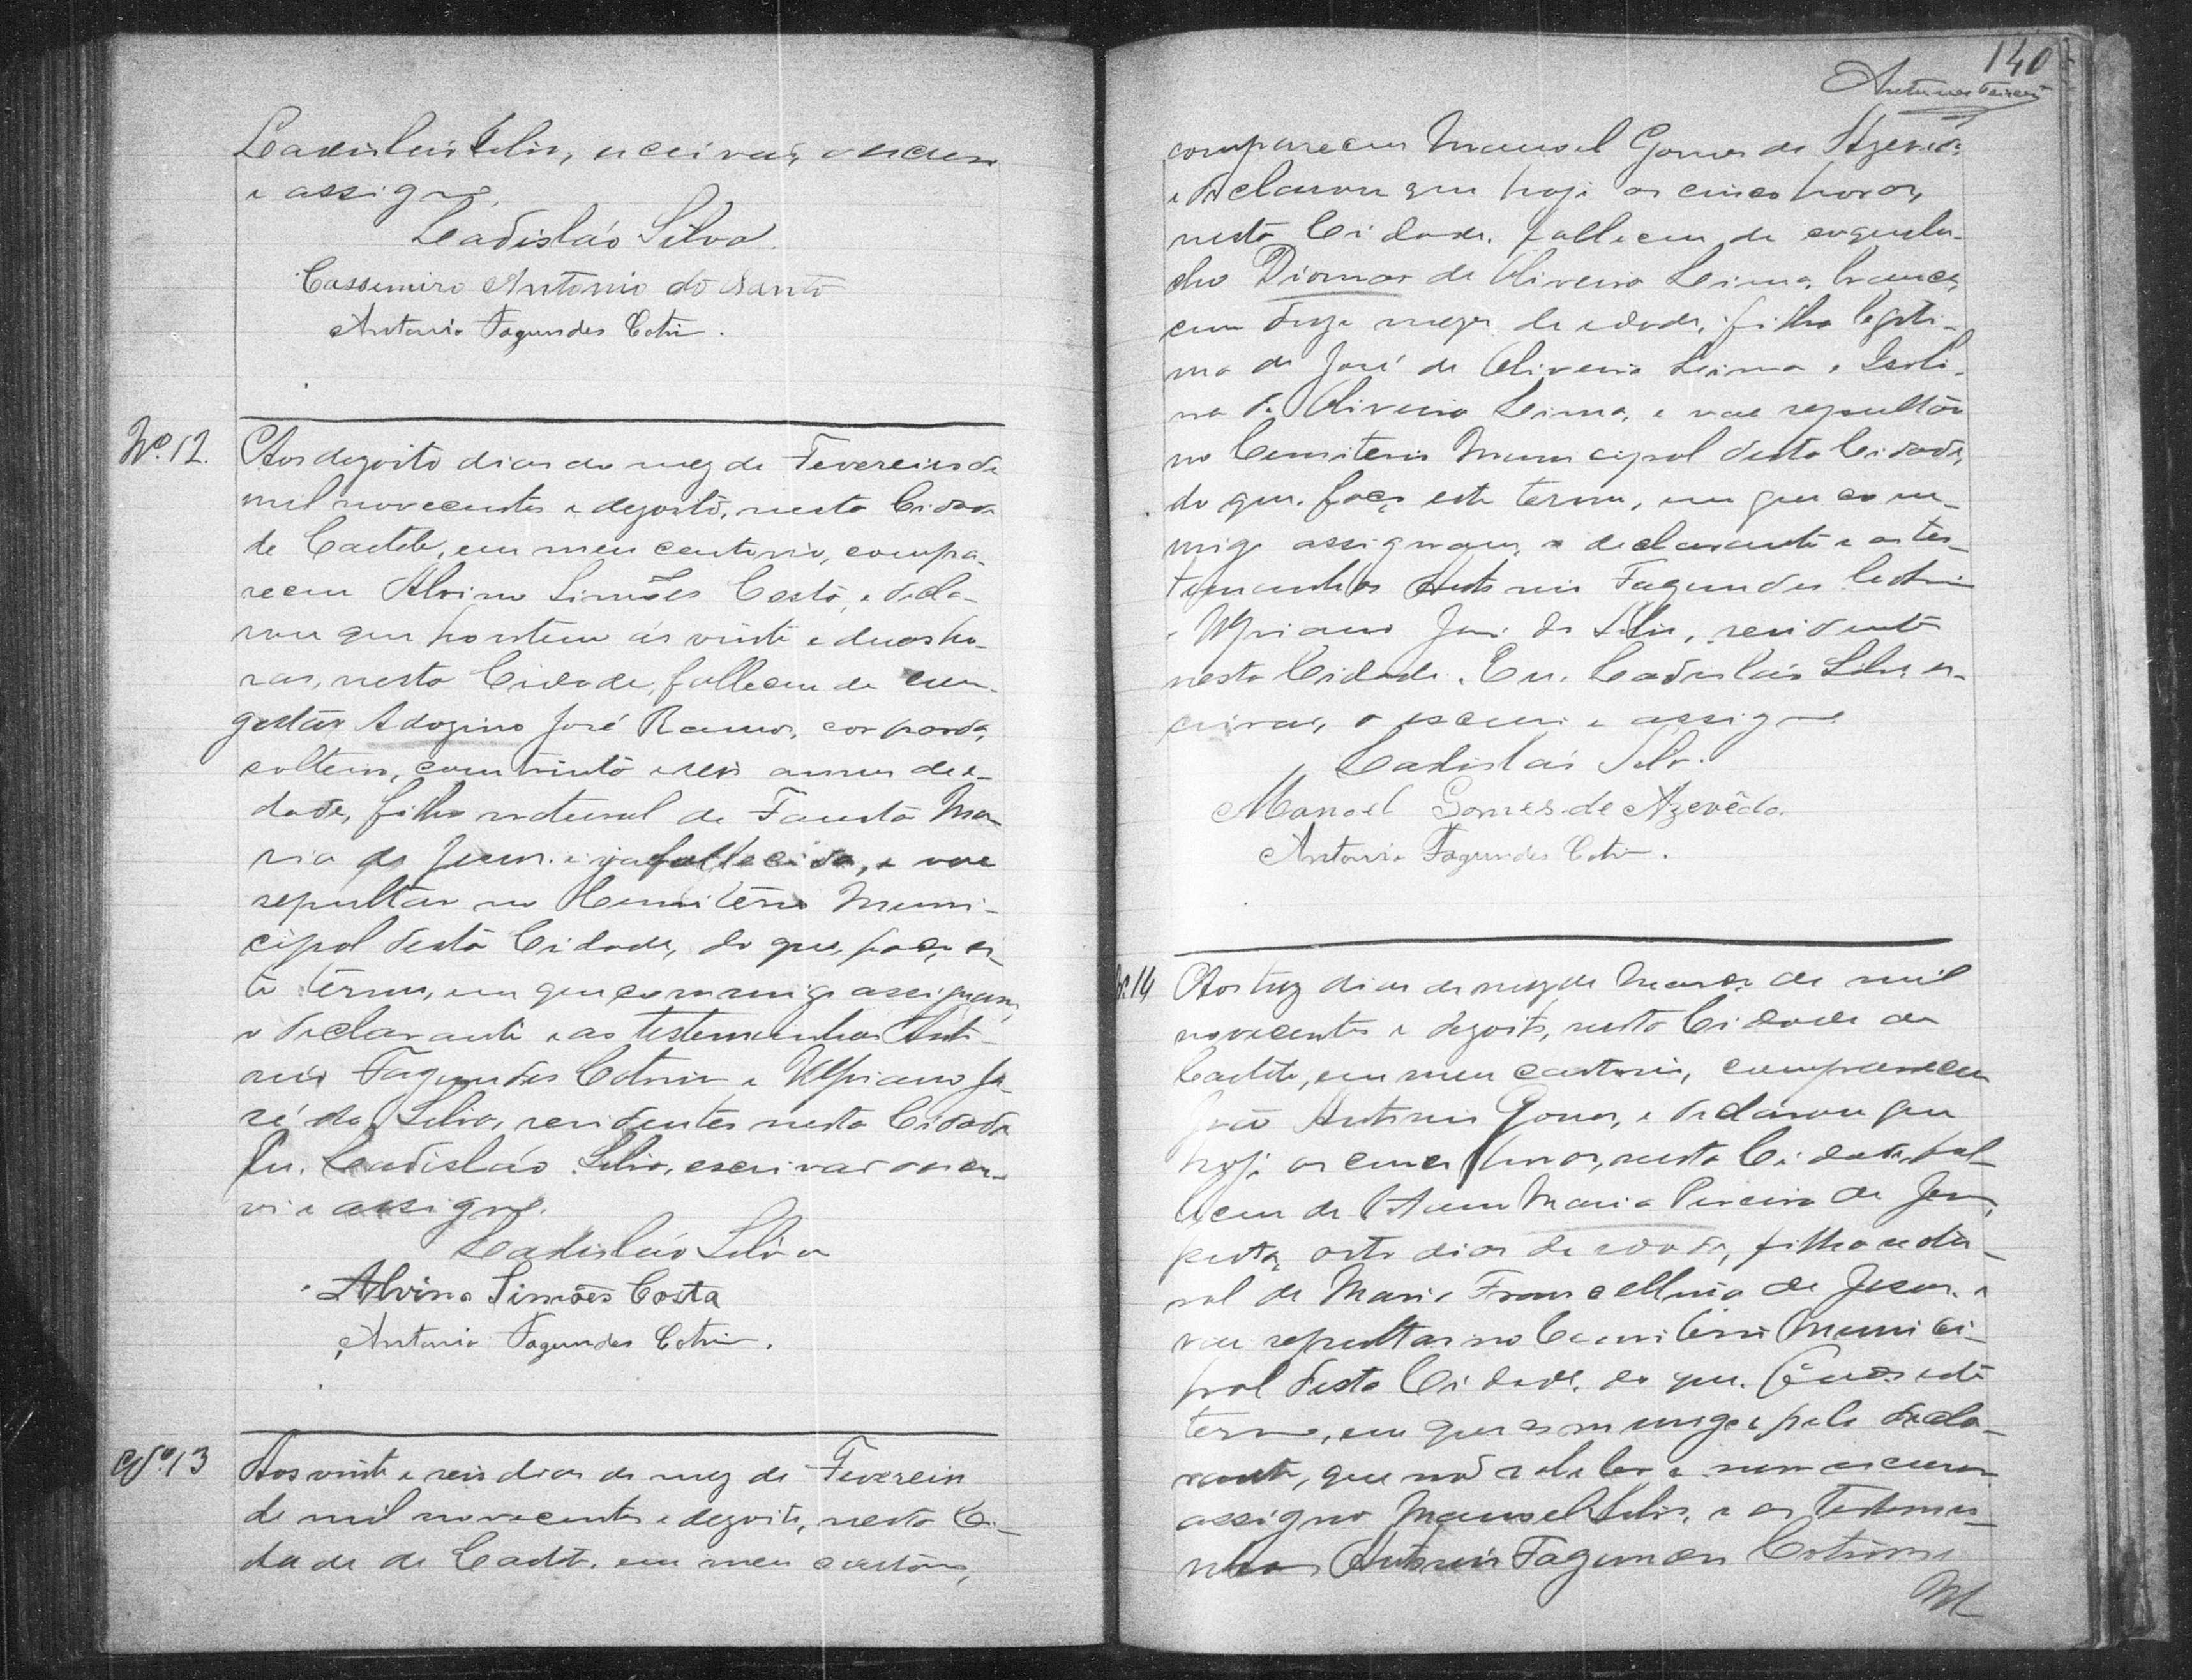 Ladislau Silva, escrivão, o escrevi
e assigno.
Ladisláo Silva
Cassemiro Antonio do Santo
Antonio Fagundes Cotrim.
Nº. 12. Aos dezoito dias do mez de Fevereiro de
mil novecentos e dezoito, nesta Cidade
de Caetité, em meu cartorio, compa-
receu Alvino Simões Costa, e decla-
rou que hontem ás vinte e duas ho-
ras, nesta Cidade, falleceu de con-
gestão Adozino José Ramos, cor parda,
solteiro, com trinta e seis annos de e-
dade, filho natural de Fausta Ma-
ria de Jesus, e ja fallecida, e vae
sepultar no Cemiterio Muni-
cipal desta Cidade, do que, faço es-
te termo, em que commigo assignam,
o declarante e as testemunhas Anto-
nio Fagundes Cotrim e Ulpiano Jo-
sé da Silva, residentes nesta Cidade
Eu. Ladisláo Silva, escrivão o escre-
vi e assigno.
Ladisláo Silva
Alvino Simões Costa
Antonio Fagundes Cotrim.
Nº. 13 Aos vinte e seis dias do mez de Fevereiro
de mil novecentos e dezoito, nesta Ci-
dade de Caetité, em meu cartorio,
140
compareceu Manoel Gomes de Azevêdo
e declarou que hoje as cinco horas,
nesta Cidade, falleceu de coquelu-
che Diomar de Oliveira Lima, branca,
com doze mezes de edade, filha legiti-
ma de José de Oliveira Lima e Isoli-
na de Oliveira Lima, e vae sepultar
no Cemiterio Municipal desta Cidade,
do que, faço este termo, em que com-
migo assignam, o declarante e as tes-
temunhas Antonio Fagundes Cotrim
e Ulpiano José da Silva, residentes
nesta Cidade. Eu. Ladisláo Silva es-
crivão, o escrevi e assigno
Ladisláo Silva
Manoel Gomes de Azevêdo.
Antonio Fagundes Cotrim.
Nº. 14 Aos trez dias do mez de Março de mil
novecentos e dezoito, nesta Cidade de
Caetité, em meu cartorio, compareceu
João Antonio Gomes, e declarou que
hoje as cinco horas, nesta Cidade, fal-
leceu de Maria Pereira de Jesus,
preta, oito dias de edade, filha natu-
ral de Maria Francellina de Jesus, e
vae sepultar no Cemiterio Munici-
pal desta Cidade, do que, este
termo, em que commigo e pelo decla-
rante, que não sabe ler e nem escrever
assigno Manoel Silva, e as testemu-
nhas Antonio Fagundes Cotrim e